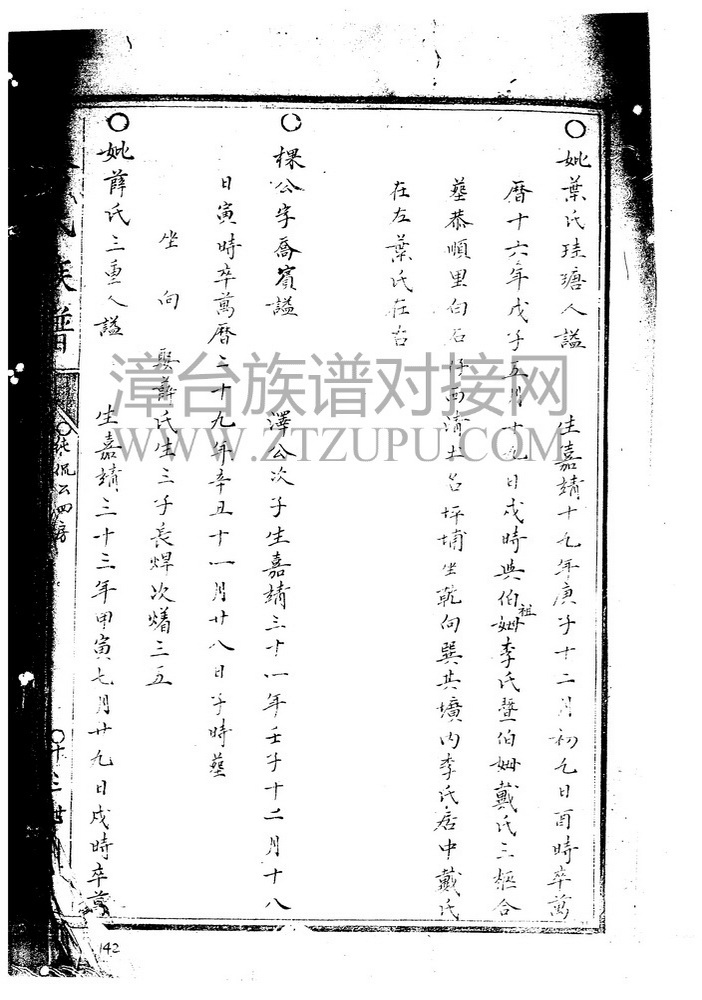 ○妣葉氏珪瑭人謚 生嘉靖十九年庚子十二月初九日酉時卒萬
曆十六年戊子五月十九日戌時與伯祖姆李氏暨伯姆戴氏三柩合
墓恭順里白石仔西浦土名坪埔坐乾向巽共壙内李氏居中戴氏
在左葉氏在右
○棵公字喬賓謚 澤公次子生嘉靖三十一年壬子十二月十八
日寅時卒萬曆二十九年辛丑十一月廿八日子時墓
坐 向 娶薛氏生三子長焊次燔三五
○妣薛氏三重人謚 生嘉靖三十三年甲寅七月廿九日戌時卒萬
氏族譜
○純侃公四房
○十三世
142
漳台族谱对接网
WWW.ZTZUPU.COM